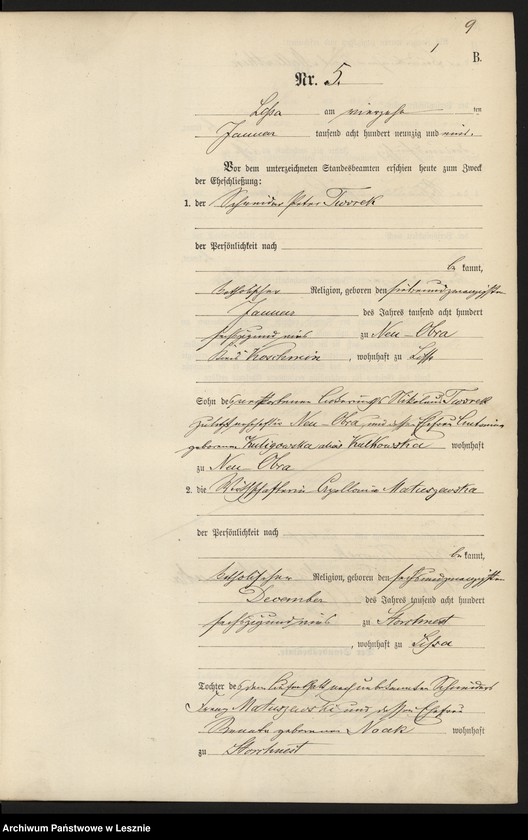 9
1
B.
Nr. 5.
Lissa am vierzehn ten
Januar tausend acht hundert neunzig und eins.
Vor dem unterzeichneten Standesbeamten erschien heute zum Zweck
der Eheschließung:
1. der Schneider Peter Tworek
der Persönlichkeit nach
be kannt,
katholischer Religion, geboren den siebenundzwanzigsten
Januar des Jahres tausend acht hundert
sechszig und eins zu Neu-Obra
Kreis Koschmin, wohnhaft zu Lissa
Sohn des verstorbenen Nikolaus Tworek
zuletzt wohnhaft in Neu-Obra, und dessen Ehefrau Antonina
geborenen Kuligowska alias Kulkowska wohnhaft
zu Neu-Obra
2. die Wirthschafterin Apollonia Matuszewska
der Persönlichkeit nach
be kannt,
katholischer Religion, geboren den sechsundzwanzigsten
December des Jahres tausend acht hundert
sechszig und eins zu Storchnest
, wohnhaft zu Lissa
Tochter des dem Aufenthalt nach unbekannten Schneiders
Franz Matuszewski und dessen Ehefrau
Renate geborenen Noak wohnhaft
zu Storchnest
Archiwum Państwowe w Lesznie